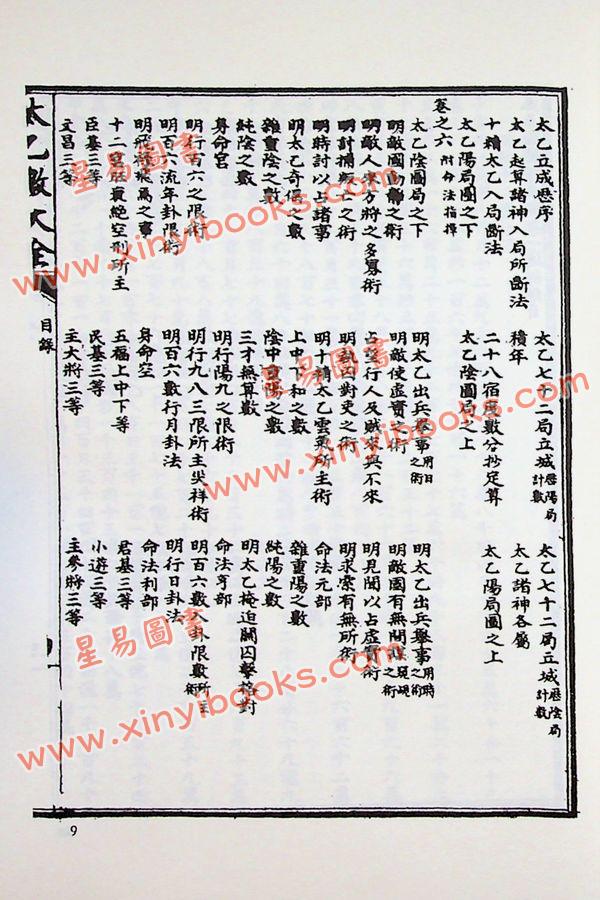 太乙立成歷序 太乙七十二局立城歷陽局計數 太乙七十二局立城歷陰局計數
太乙起算諸神入局所斷法 積年 太乙諸神各屬
十精太乙入局斷法 二十八宿度數分抄定算 太乙陽局圖之上
太乙陽局圖之下 太乙陰圖局之上
卷之六 附分法指揮
太乙陰圖局之下 明太乙出兵舉事用日之術 明太乙出兵舉事用時之術
明敵國動靜之術 明敵使虛實之術 明敵國有無間諜窺覘之術
明敵人來方將之多寡術 占望行人及賊來與不來 明見聞以占虛實術
明計捕叛亡之術 明執囚對吏之術 明求索有無所術
明時討以占諸事 明十精太乙雲氣所主術 命法元部
明太乙奇偶之數 上中下和之數 雜重陽之數
雜重陰之數 陰中重陽之數 純陽之數
純陰之數 三才無算數 明太乙掩迫關囚擊格對
身命宮 明行陽九之限術 命法亨部
明行百六之限術 明行九八三限所主災祥術 明百六數入卦限數所主術
明百六流年卦限術 明百六數行月卦法 明行日卦法
明飛祿飛馬之事 身命空 命法利部
十二宮衰絕空刑所主 五福上中下等 君基三等
臣基三等 民基三等 小遊三等
文昌三等 主大將三等 主參將三等
太乙數大全 目錄
9
星易圖書
www.xinyibooks.com
星易圖書
www.xinyibooks.com
星易圖書
www.xinyibooks.com